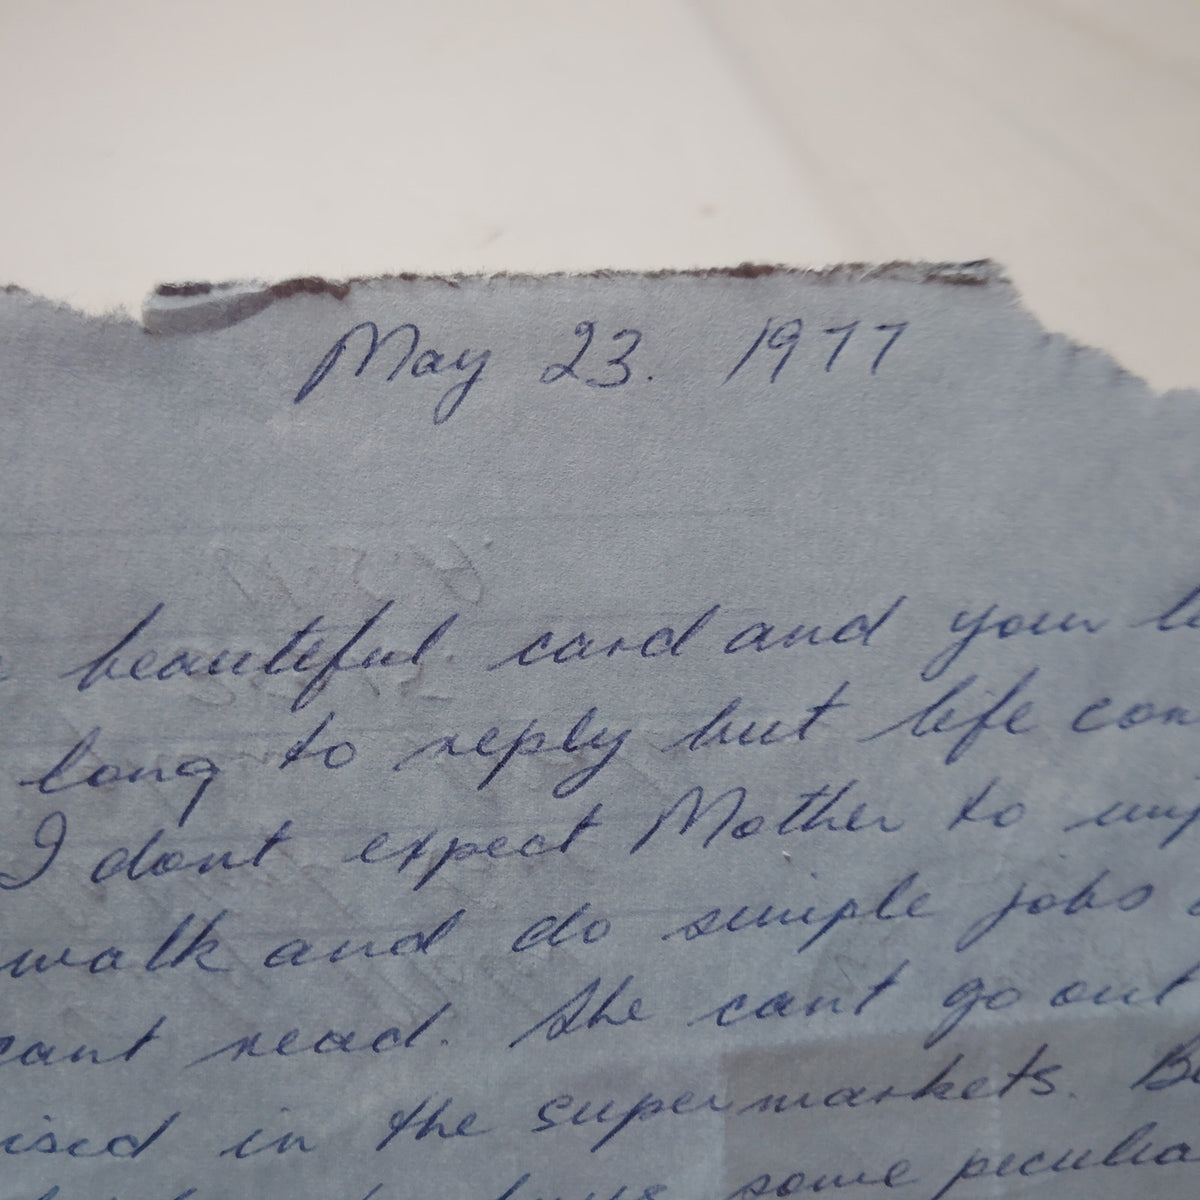 May 23. 1977
beautiful. card and your
long to reply but life
I dont expect Mother to
walk and do simple jobs
cant read. She cant go out
in the supermarkets.
some